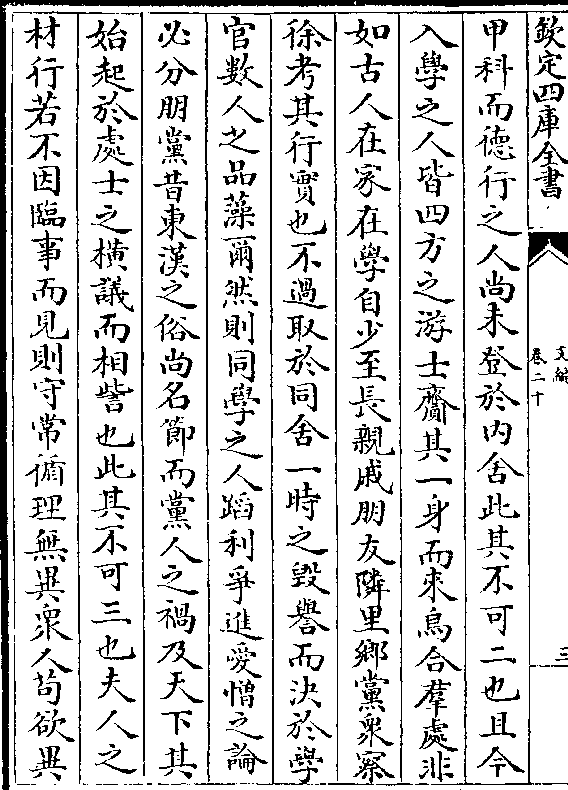 欽定四庫全書
文編
卷二十
三
甲科而德行之人尚未登於内舍此其不可二也且今
入學之人皆四方之游士齎其一身而來鳥合羣處非
如古人在家在學自少至長親戚朋友隣里鄉黨衆察
徐考其行實也不過取於同舍一時之毀譽而決於學
官數人之品藻爾然則同學之人蹈利爭進愛憎之論
必分朋黨昔東漢之俗尚名節而黨人之禍及天下其
始起於處士之横議而相訾也此其不可三也夫人之
材行若不因臨事而見則守常循理無異衆人苟欲異